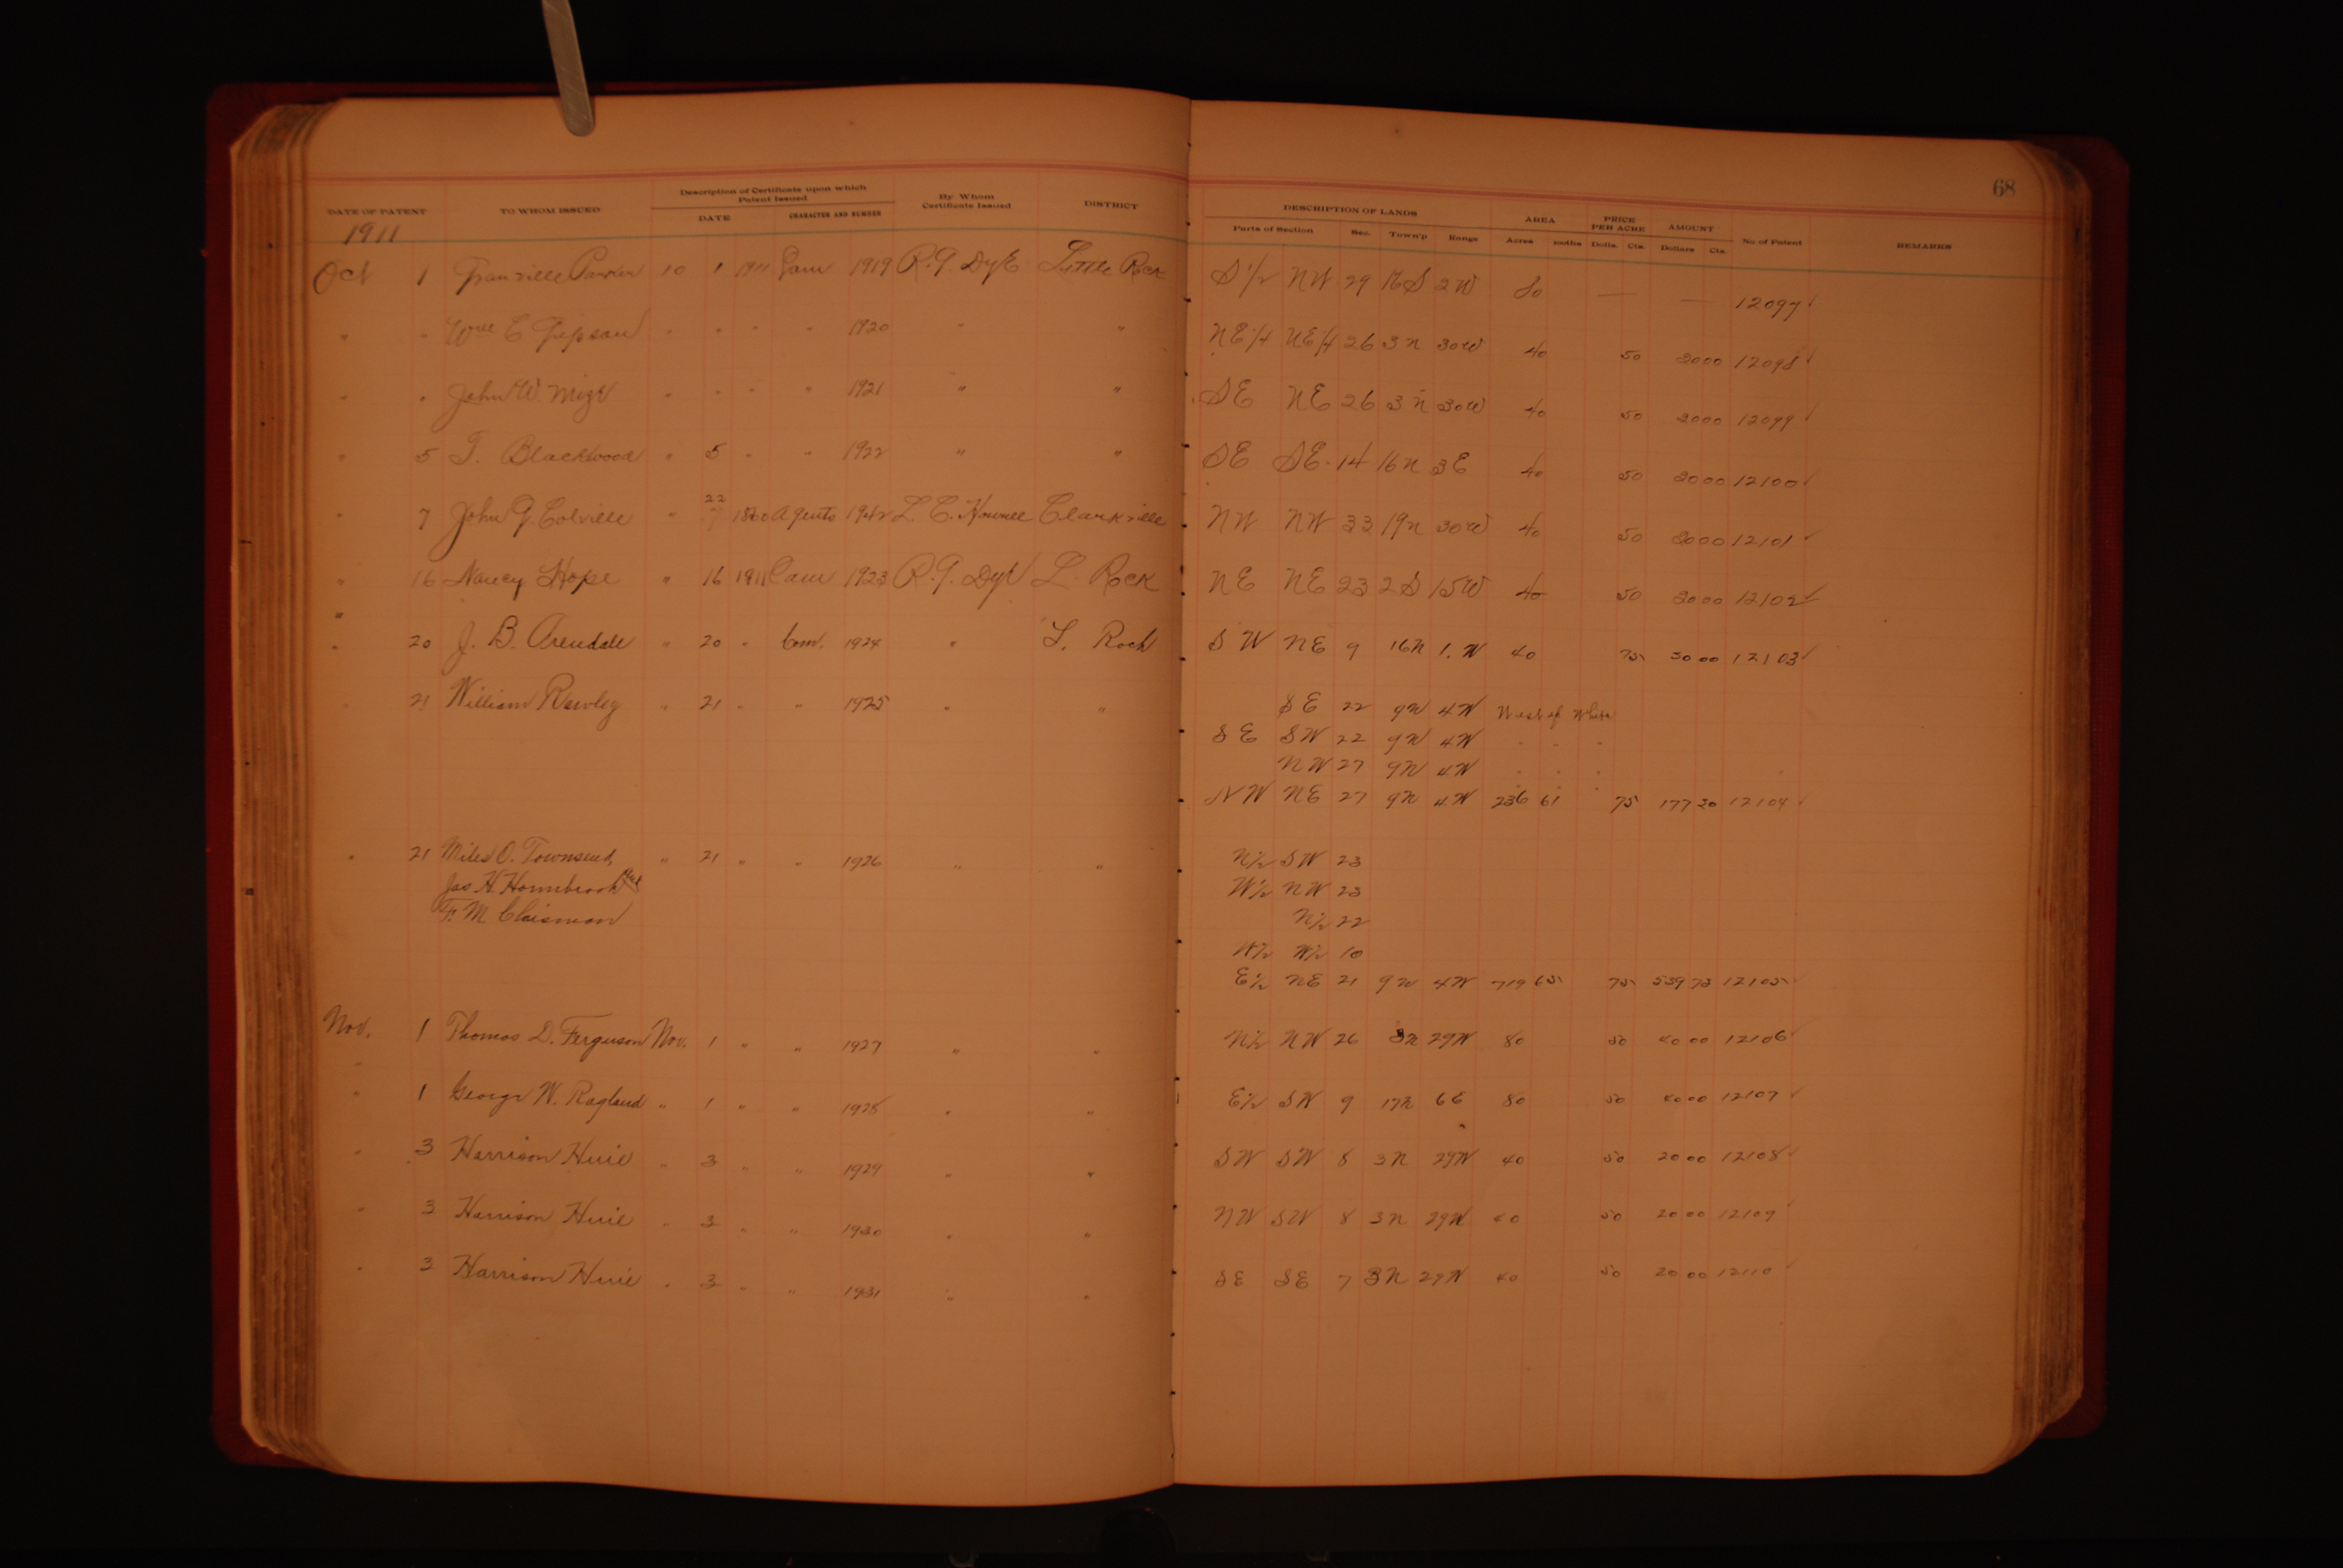 68
Description of Certificate upon which Patent Issued
DATE OF PATENT TO WHOM ISSUED DATE CHARACTER AND NUMBER By Whom Certificate Issued DISTRICT DESCRIPTION OF LANDS Parts of Section Sec. Town'p Range AREA Acres PRICE PER ACRE Dolls. Cts. AMOUNT Dollars Cts. No of Patent REMARKS
1911
Oct 1 Granville Parker 10 1 1911 1919 R. G. Dye Little Rock S 1/2 NW 29 16 S 2 W 80 — — 12097 ✓
" " Wm C " " " " 1920 " " NE 1/4 NE 1/4 26 3 N 30 W 40 50 20 00 12098 ✓
" " John W. " " " " 1921 " " SE NE 26 3 N 30 W 40 50 20 00 12099 ✓
" 5 T. Blackwood " 5 " " 1922 " " SE SE 14 16 N 3 E 40 50 20 00 12100 ✓
22
" 7 John G Colville " 7 1860 Agents 1942 L. C. Howell Clarksville NW NW 33 19 N 30 W 40 50 20 00 12101 ✓
" 16 Nancy Hope " 16 1911 1923 R. G. Dye L. Rock NE NE 23 2 S 15 W 40 50 20 00 12102 ✓
" 20 J. B. Arendale " 20 " Com. 1924 " L. Rock SW NE 9 16 N 1. W 40 75 30 00 12103 ✓
" 21 William Rawley " 21 " " 1925 " " SE 22 9 N 4 W West of White
SE SW 22 9 N 4 W " " "
NW 27 9 N 4 W " " "
NW NE 27 9 N 4 W 236 61 75 177 20 12104 ✓
" 21 Miles O. Townsend, " 21 " " 1926 " " N 1/2 SW 23
Jas H. Hornibrook and W 1/2 NW 23
F. M. Chisman N 1/2 22
W 1/2 W 1/2 10
E 1/2 NE 21 9 N 4 W 719 65 75 539 73 12105 ✓
Nov. 1 Thomas D. Ferguson Nov. 1 " " 1927 " " N 1/2 NW 26 3 N 29 W 80 50 40 00 12106 ✓
" 1 George W. Ragland " 1 " " 1928 " " E 1/2 SW 9 17 N 6 E 80 50 40 00 12107 ✓
" 3 Harrison Huie " 3 " " 1929 " " SW SW 8 3 N 29 W 40 50 20 00 12108 ✓
" 3 Harrison Huie " 3 " " 1930 " " NW SW 8 3 N 29 W 40 50 20 00 12109 ✓
" 3 Harrison Huie " 3 " " 1931 " " SE SE 7 3 N 29 W 40 50 20 00 12110 ✓